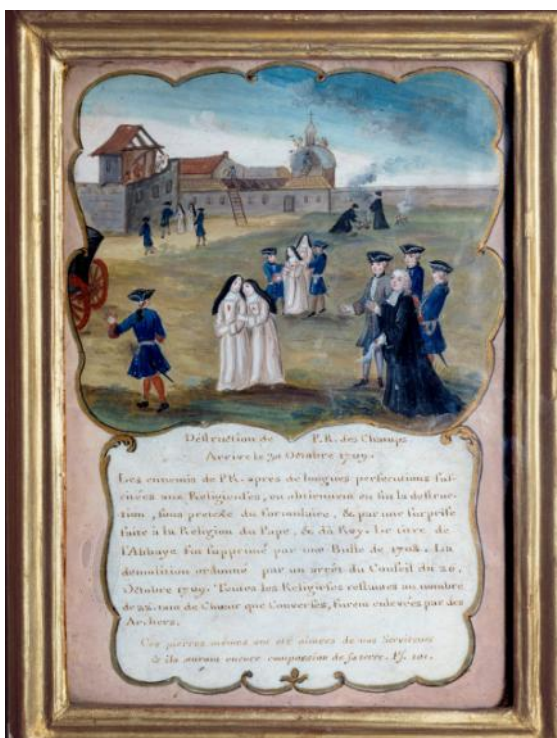 Destruction de P. R. des Champs
Arrivé le 30 Octobre 1709.
Les ennemis de P.R. apres de longues persecutions sus-
citées aux Religieuses, en obtiennent en fin la destruc-
tion, sous pretexte du formulaire, & par une surprise
faite à la Religion du Pape, & du Roy. Le titre de
l'Abbaye fut supprimé par une Bulle de 1708. La
demolition ordonné par un arrêt du Conseil du 26.
Octobre 1709. Toutes les Religieses restantes au nombre
de 22. tant de Chœur que Converses, furent enlevées par des
Archers.
Ces pierres mêmes ont été aimées de vos Serviteurs
& ils auront encore compassion de sa terre. Ps. 101.